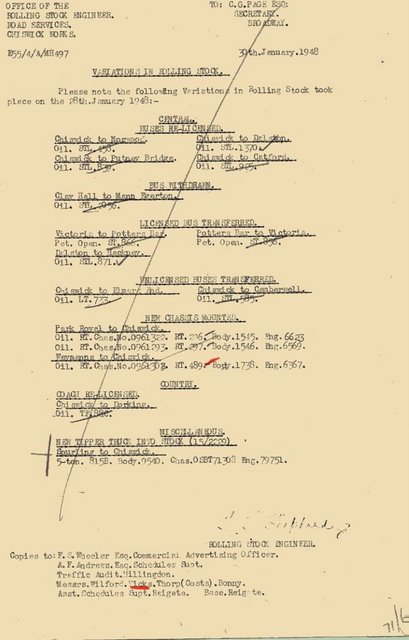 OFFICE OF THE TO: C.G.PAGE ESQ:
ROLLING STOCK ENGINEER. SECRETARY.
ROAD SERVICES. BROADWAY.
CHISWICK WORKS.
E55/4/A/MH497 30th.January.1948
VARIATIONS IN ROLLING STOCK.
Please note the following Variations in Rolling Stock took
place on the 28th.January 1948:-
CENTRAL.
BUSES RE-LICENSED.
Chiswick to Norwood. Chiswick to Dalston.
Oil. STL.458. Oil. STL.1370.
Chiswick to Putney Bridge. Chiswick to Catford.
Oil. STL. Oil. STL.
BUS WITHDRAWN.
Clay Hall to Mann Egerton.
Oil. STL.
LICENSED BUS TRANSFERRED.
Victoria to Potters Bar. Potters Bar to Victoria.
Pet. Open. ST. Pet. Open. ST.
Dalston to Hackney.
Oil. STL.871.
UNLICENSED BUSES TRANSFERRED.
Chiswick to Elmers End. Chiswick to Camberwell.
Oil. LT.733. Oil. STL.585.
NEW CHASSIS MOUNTED.
Park Royal to Chiswick.
Oil. RT.Chas.No.0961322. RT.296. Body.1545. Eng.6623
Oil. RT.Chas.No.0961293. RT.297. Body.1546. Eng.6569.
Weymanns to Chiswick.
Oil. RT.Chas.No.0961307. RT.489. Body.1738. Eng.6367.
COUNTRY.
COACH RE-LICENSED.
Chiswick to Dorking.
Oil.
MISCELLANEOUS.
NEW TIPPER TRUCK INTO STOCK (15/2229)
Spurling to Chiswick.
5-ton. 815B. Body.9540. Chas.OSBT71308 Eng.79751.
ROLLING STOCK ENGINEER.
Copies to: F.S.Wheeler Esq.Commercial Advertising Officer.
A.F.Andrews.Esq.Schedules Supt.
Traffic Audit.Hillingdon.
Messrs.Wilford.Hicks.Thorp(Costs).Bonny.
Asst.Schedules Supt.Reigate. Base.Reigate.
71/6